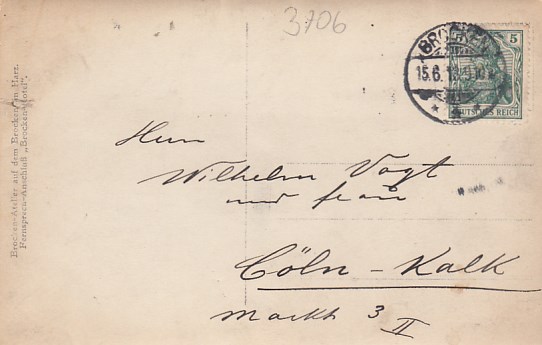 3706
BROCKEN
15.6.
5
DEUTSCHES REICH
Herrn
Wilhelm Vogt
und Frau
Cöln - Kalk
Markt 3
II
Brocken-Atelier auf dem Brocken im Harz.
Fernsprech-Anschluß „Brocken-Hotel".